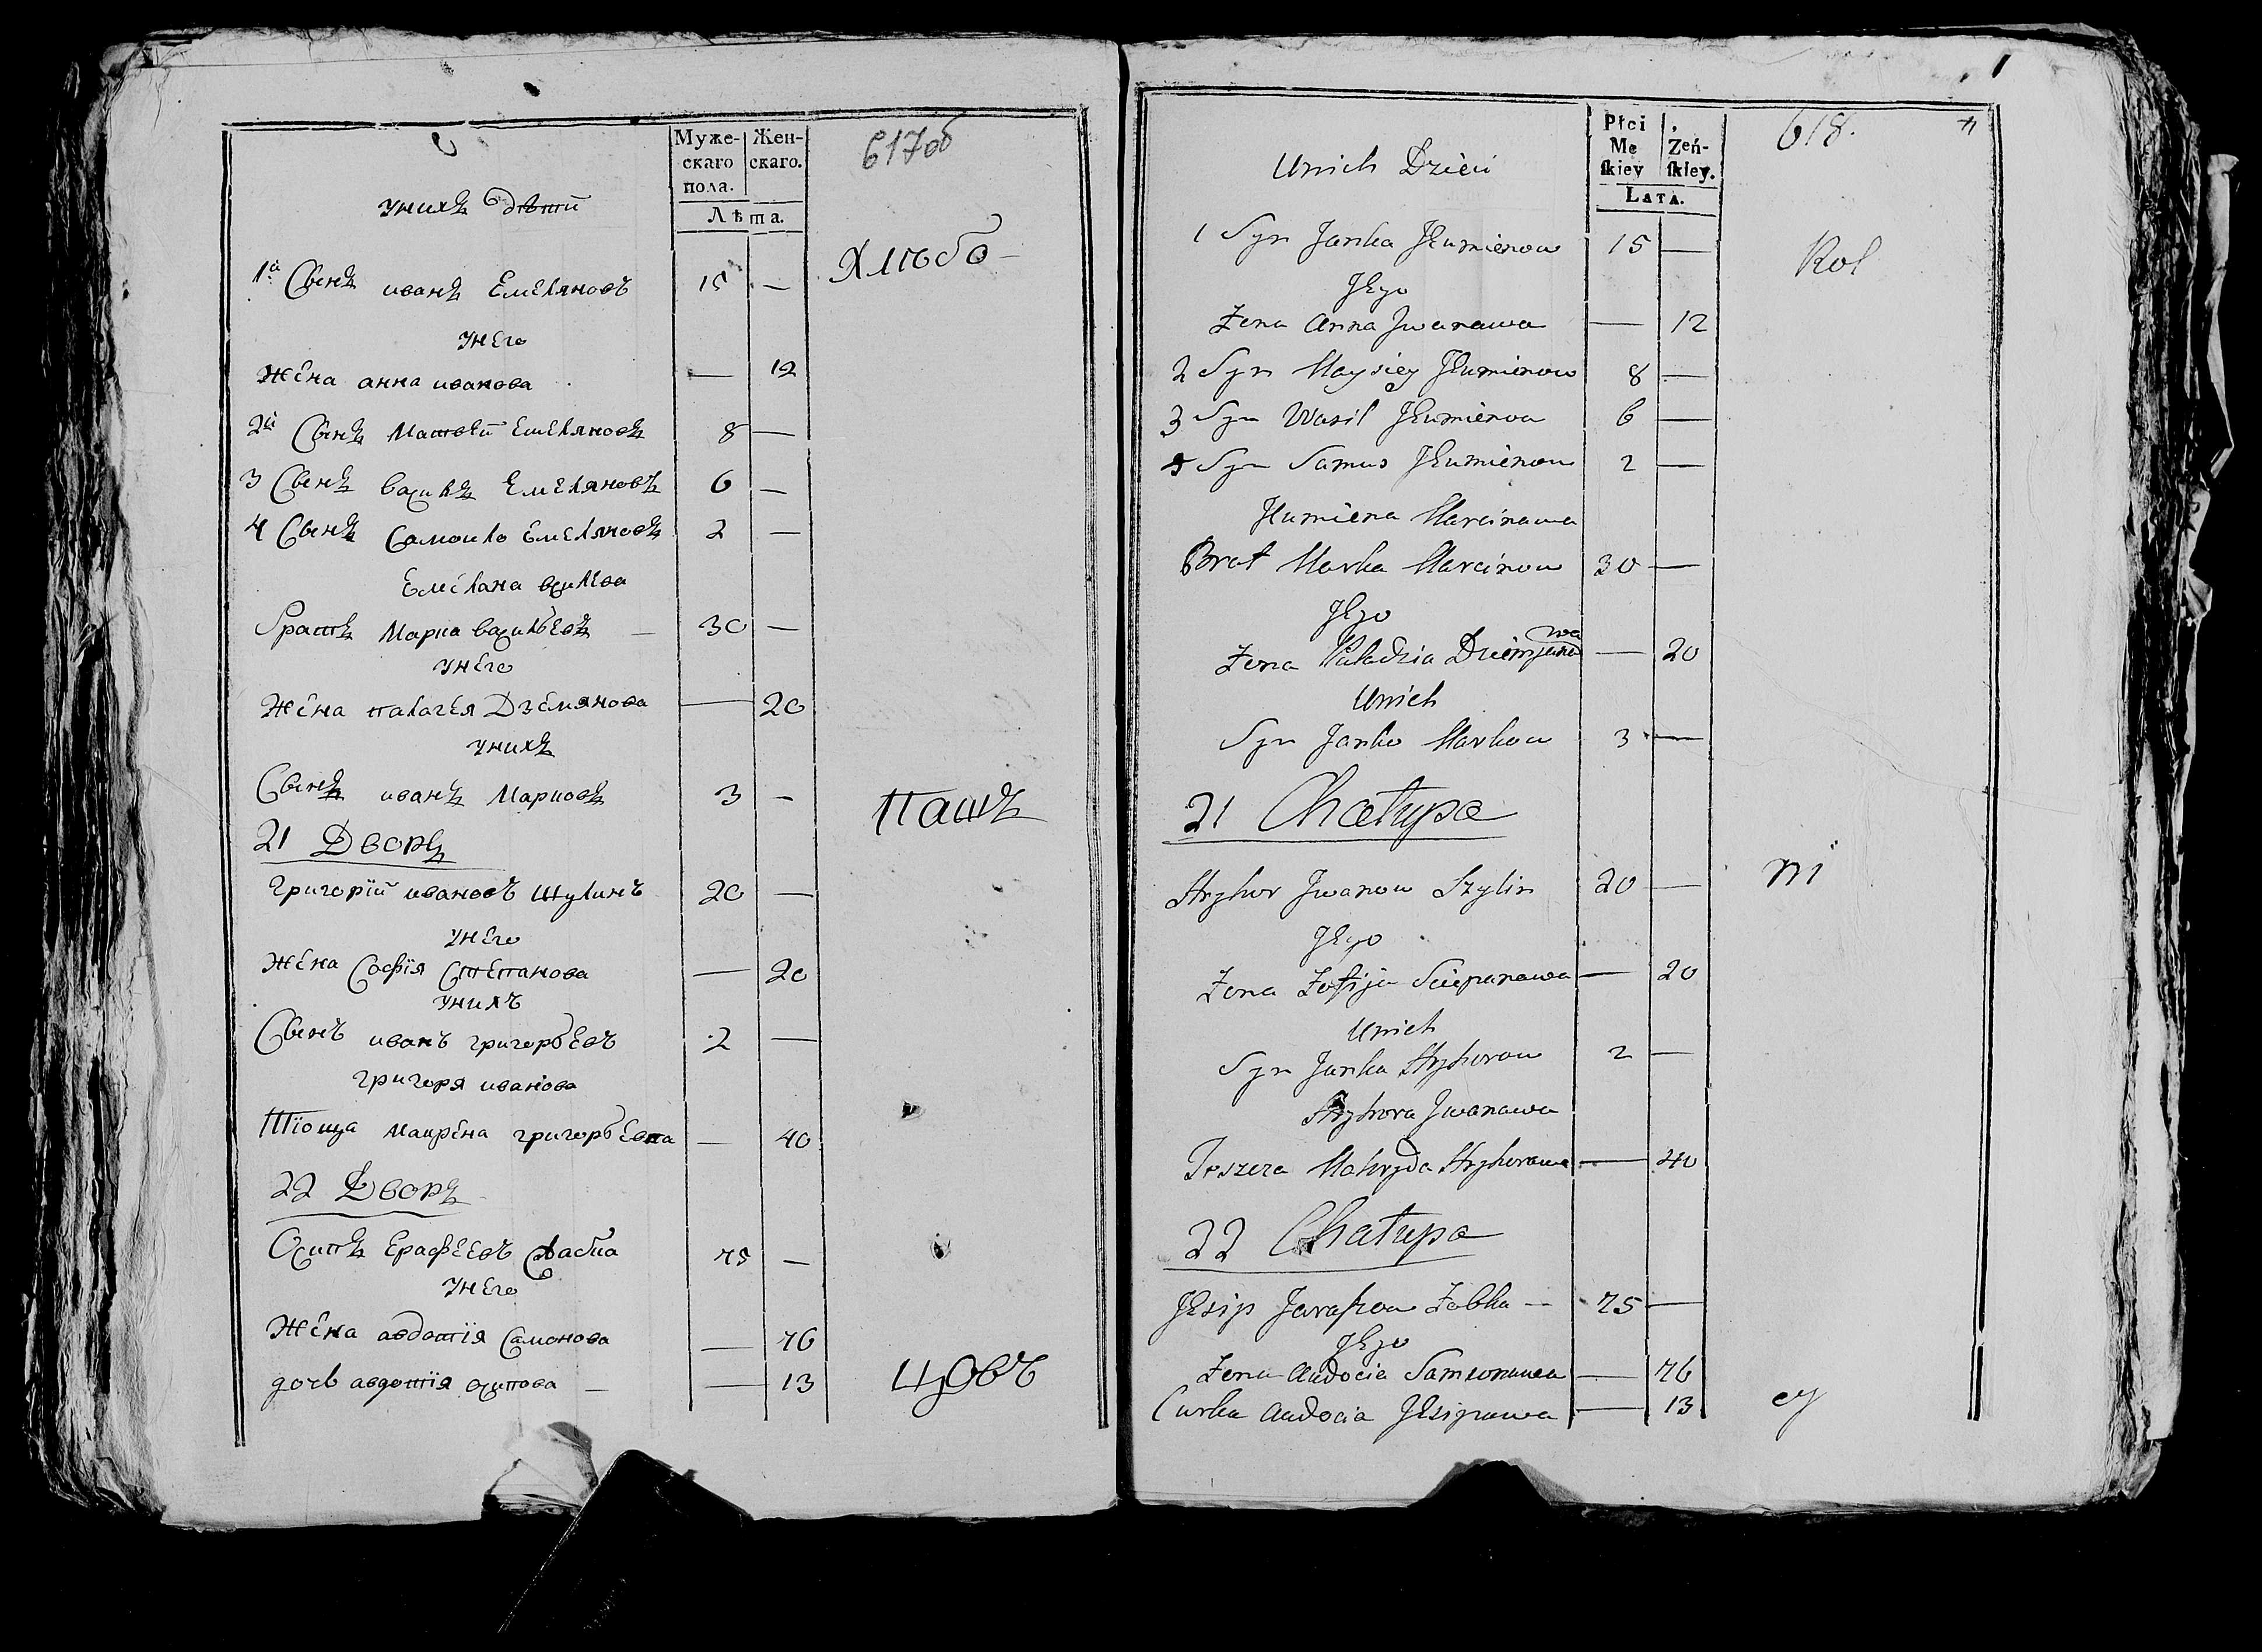 Муже- Жен-
скаго скаго.
пола.
Лѣта.
617об
унихъ дѣти
1й Сынъ иванъ Емеляновъ 15 —
Хлѣбо
унего
жена анна иванова — 12
2й Сынъ Матвѣй Емеляновъ 8 —
3 Сынъ васи лъ Емеляновъ 6 —
4 Сынъ Самоило Емеляновъ 2 —
Емеляна
братъ Марка васильевъ — 30 —
унего
жена палагея Дземянова — 20
унихъ
Сынъ иванъ Марковъ 3 —
пашъ
21 Дворъ
григорїй ивановъ шулинъ 20 —
унего
жена Софїя Степанова — 20
унихъ
Сынъ иванъ григорьевъ 2 —
григоря иванова
Тїоща григорьевна — 40
22 Дворъ
Осипъ Ерафеевъ 75 —
унего
жена авдотїя Самонова — 76
дочь авдотїя осипова — — 13
цовъ
Płci Żeń-
Me skiey.
skiey
LATA.
618.
Unich Dzieci
1 Syn Janka JEumienow 15 —
Rol
JEgo
Żona Anna Jwanawa — 12
2 Syn Maysiey JEumienow 8 —
3 Syn Wasil JEumienow 6 —
4 Syn Samus JEumienow 2 —
JEumiena Marcinawa
Brat Marka Marcinow 30 —
JEgo
Żona Paładzia Dziemjanawa — 20
Unich
Syn Janko Markow 3 —
21 Chałupa
Hryhor Jwanow Szylin 20 —
ni
JEgo
Żona Zofija Sciepanawa — 20
Unich
Syn Janka Hryhorow 2 —
Hryhora Jwanawa
Hryhorawa — 40
22 Chałupa
JEsip Jarafiow Żabka — 75 —
JEgo
Żona Audocia Samsonawa — 76
Curka Audocia JEsipawa — 13
cy